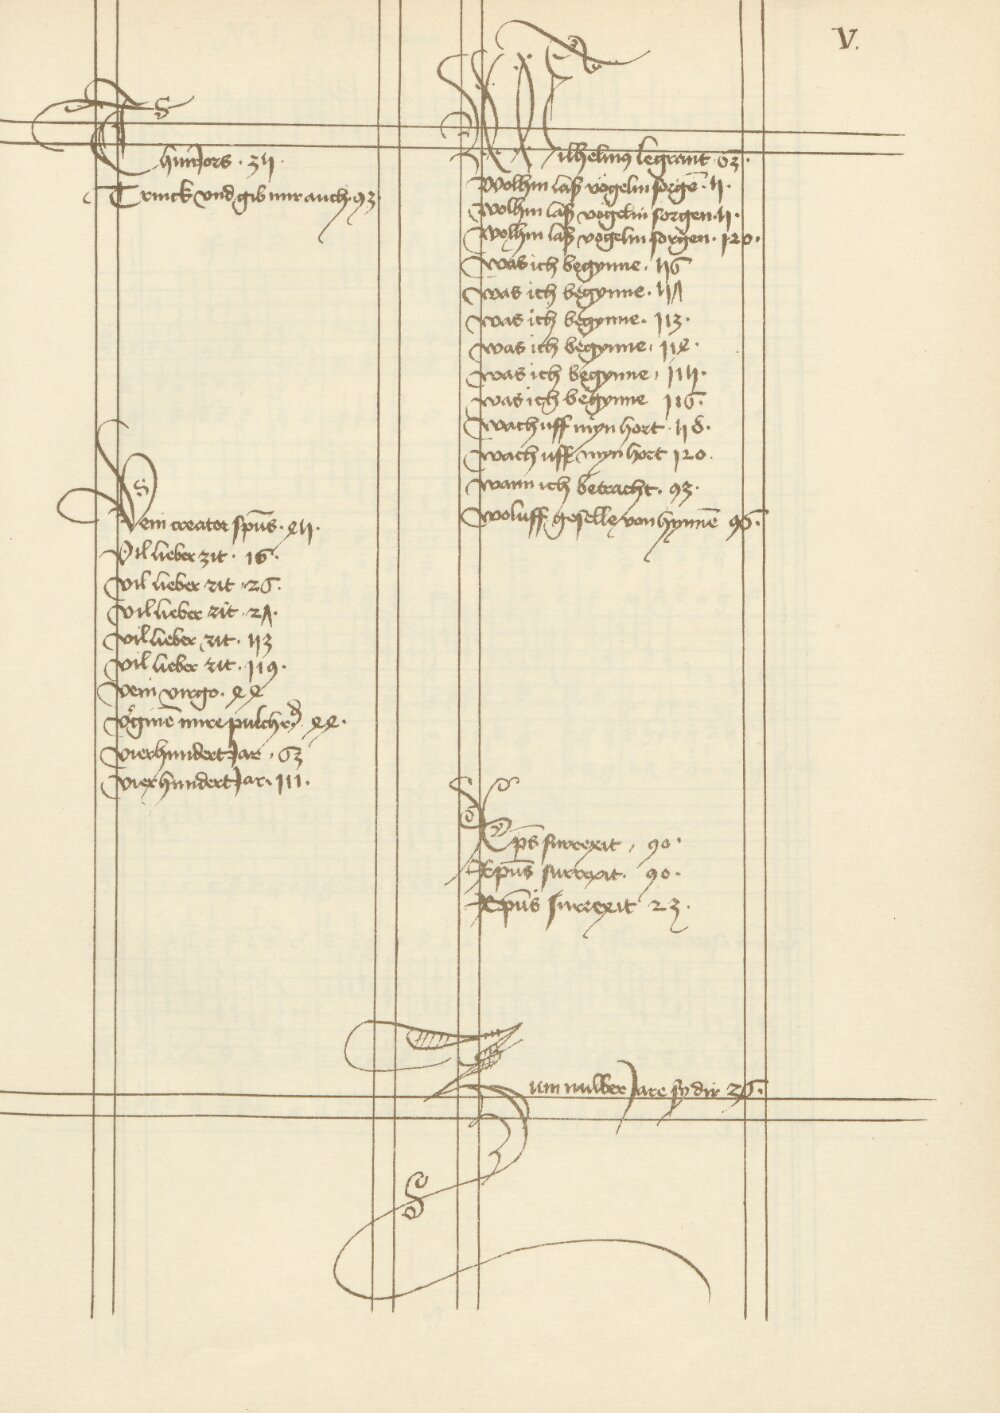 V.
Thuniors . 35 .
Trinck und gib mir auch . 93
Veni creator sp̄us . 45 .
Vil lieber zit . 16 .
vil lieber zit . 26 .
vil lieber zit . 27 .
vil lieber zit . 53
vil lieber zit . 119 .
veni virgo . 44
mire pulchr 44 .
vierhundert Jar . 63
vierhundert Jar . 111 .
Wilhelmus legrant 63 .
Wolhin laß vögelin sorgē . 5 .
Wolhin laß vögelin sorgen . 5 .
Wolhin laß vögelin sorgen . 120 .
was ich begynne . 56
was ich begynne . 57
was ich begynne . 113 .
was ich begynne . 114 .
was ich begynne . 115 .
was ich begynne 116 .
wach uff myn hort . 58 .
wach uff myn hort 120 .
wann ich betracht . 93 .
woluff geselle von hynnē 96 .
Xp̄s surrexit . 90 .
Xpūs surrexit . 90 .
Xpūs surrexit 23 .
Zum nuwen Jare sy dir 36 .